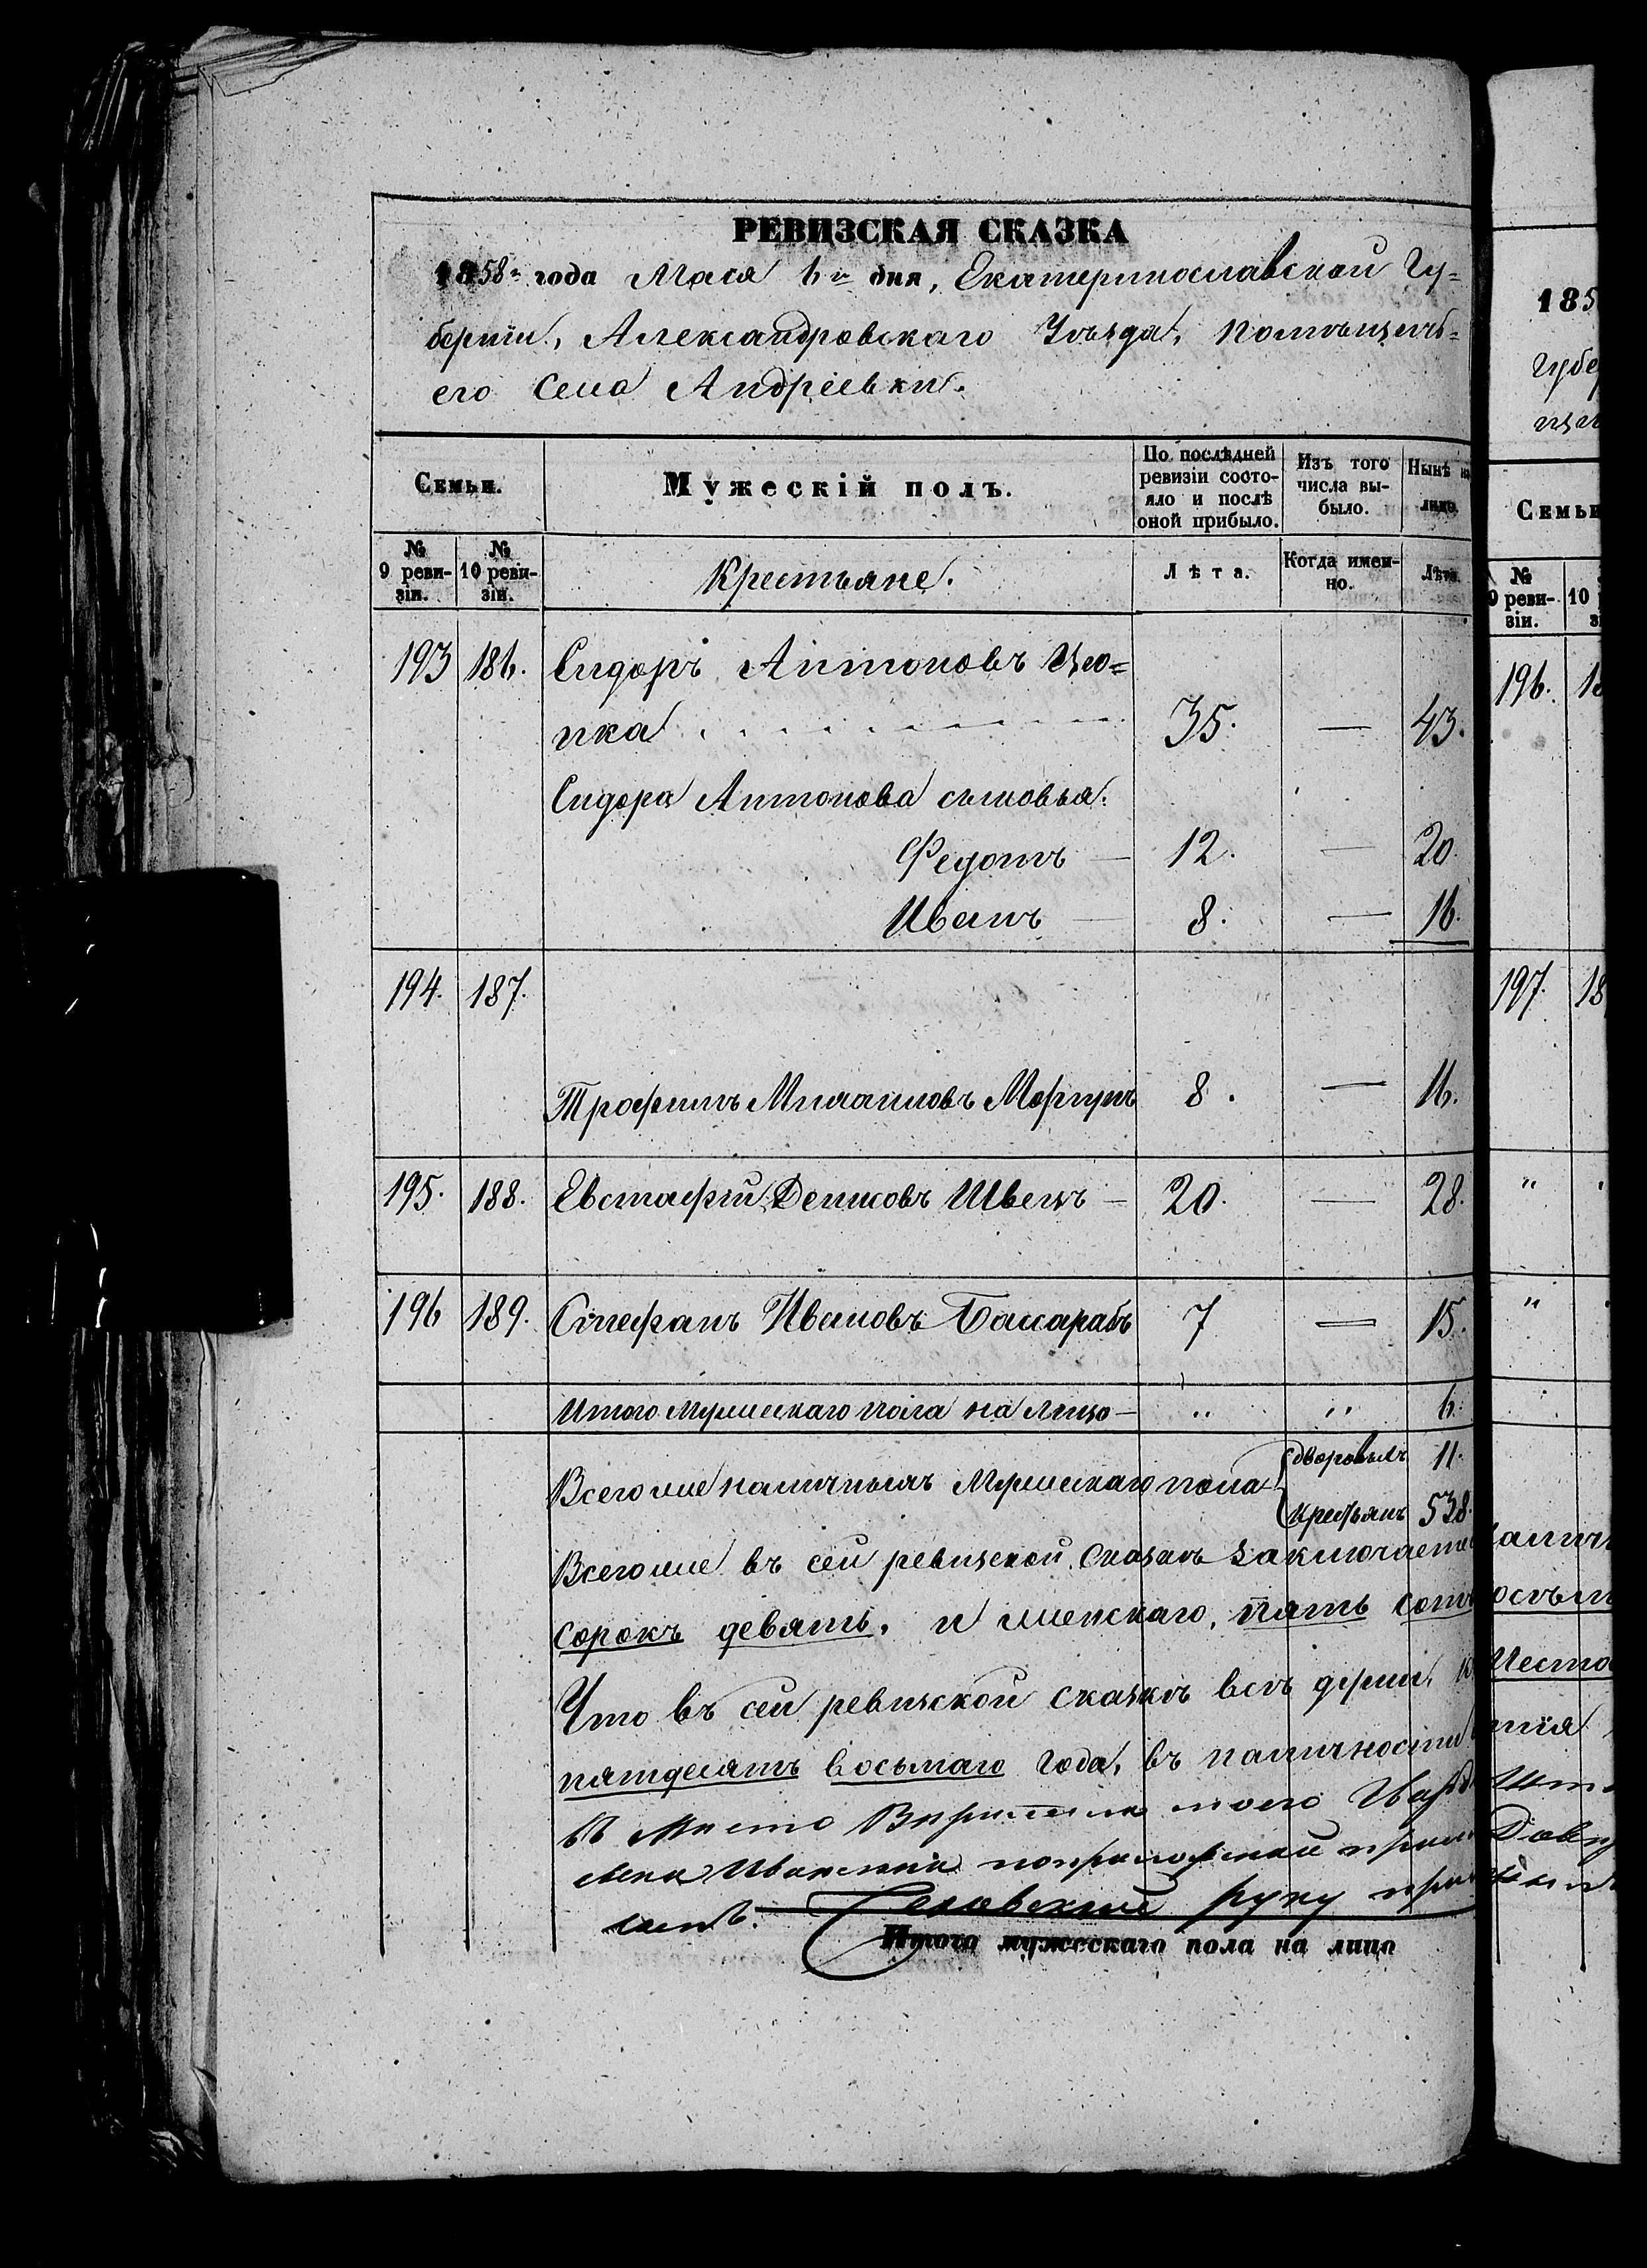 РЕВИЗСКАЯ СКАЗКА
1858го года Маія 6го дня, Екатеринославской Гу-
берніи, Александровскаго Уѣзда, помѣщичь-
его Села Андреевки.
Семьи.
Мужескій полъ.
По послѣдней ревизіи состо-яло и послѣ оной прибыло.
Изъ того числа вы-было.
Нынѣ на лицо.
№ 9 реви-зіи.
№ 10 реви-зіи.
Крестьяне.
Лѣта.
Когда имен-но.
Лѣта.
193 186. Сидоръ Антоновъ Цю=
пка 35. — 43.
Сидора Антонова сыновья:
Федотъ — 12. — 20.
Иванъ — 8. — 16.
194. 187.
Трофимъ Михаиловъ Моргунъ 8. — 16.
195. 188. Евстафій Денисовъ Швецъ — 20. — 28.
196 189. Стефанъ Ивановъ Бассарабъ 7 — 15.
Итого мужескаго пола на лицо — " " 6.
Всего же наличныхъ мужескаго пола
дворовыхъ 11.
крестьянъ 538.
Всего же въ сей ревизской сказкѣ заключается
сорокъ девять, и женскаго, пять сотъ
Что въ сей ревизской сказкѣ всѣ души, к
пятдесятъ восьмаго года, въ наличности
руку
Итого мужескаго пола на лицо
185
Губер
Семьи
№ 9 реви-зіи.
10
196.
197. 18
"
"